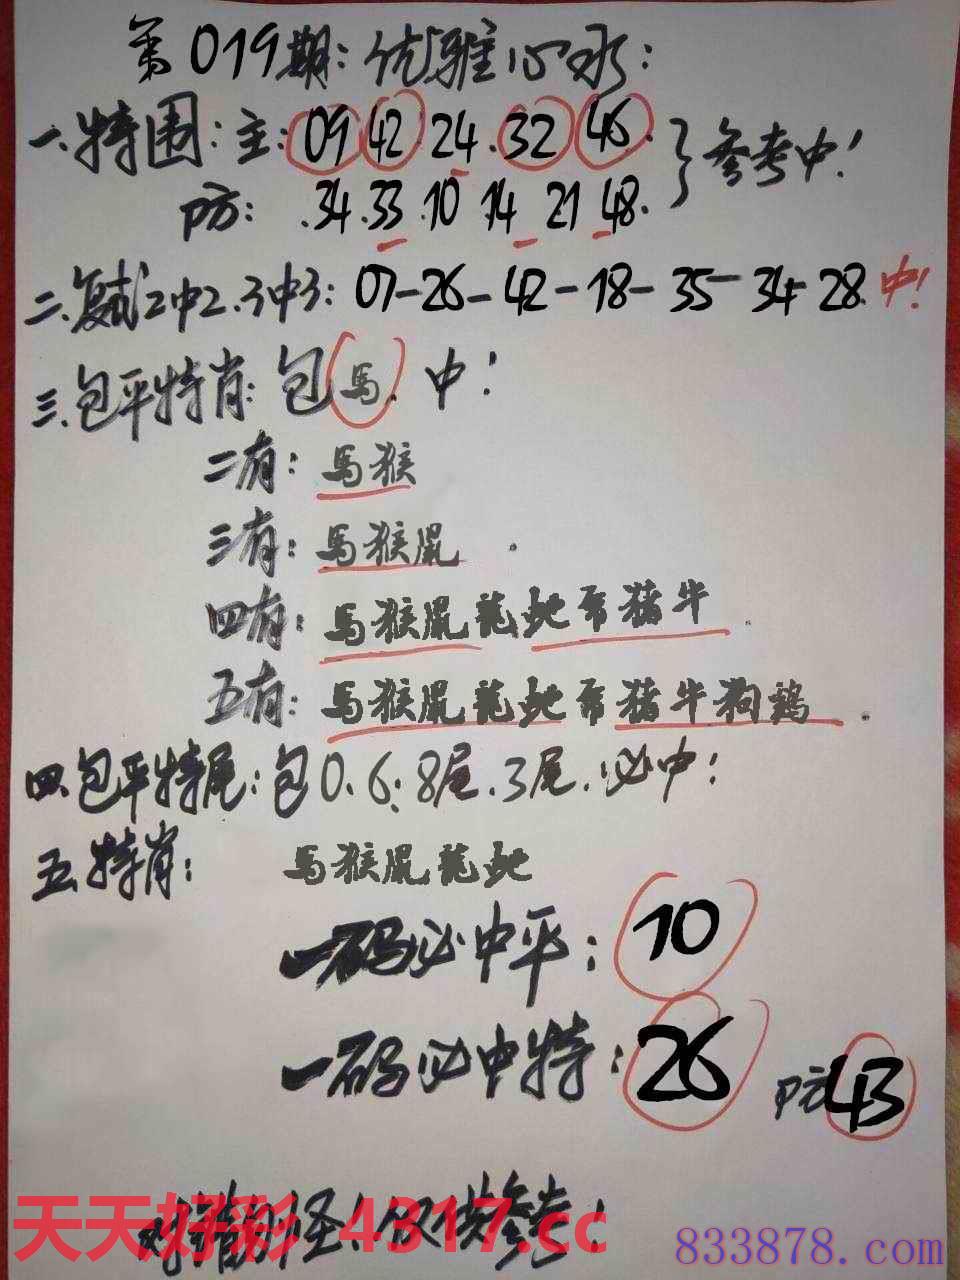 第019期：优雅心水：
一.特围：主：09 42 24.32 46.
防：.34.33.10 14 21 48.
参考中！
二.复试2中2.3中3：07-26-42-18-35-34-28.中！
三.包平特肖：包馬.中！
二有：馬猴
三有：馬猴鼠.
四有：馬猴鼠龍蛇 猪牛.
五有：馬猴鼠龍蛇 猪牛狗鸡.
四.包平特尾：包0.6：8尾.3尾.必中！
五.特肖：馬猴鼠龍蛇
一码必中平：10
一码必中特：26 防43
对错别怪！仅供参考！
天天好彩 4317.cc
833878.com